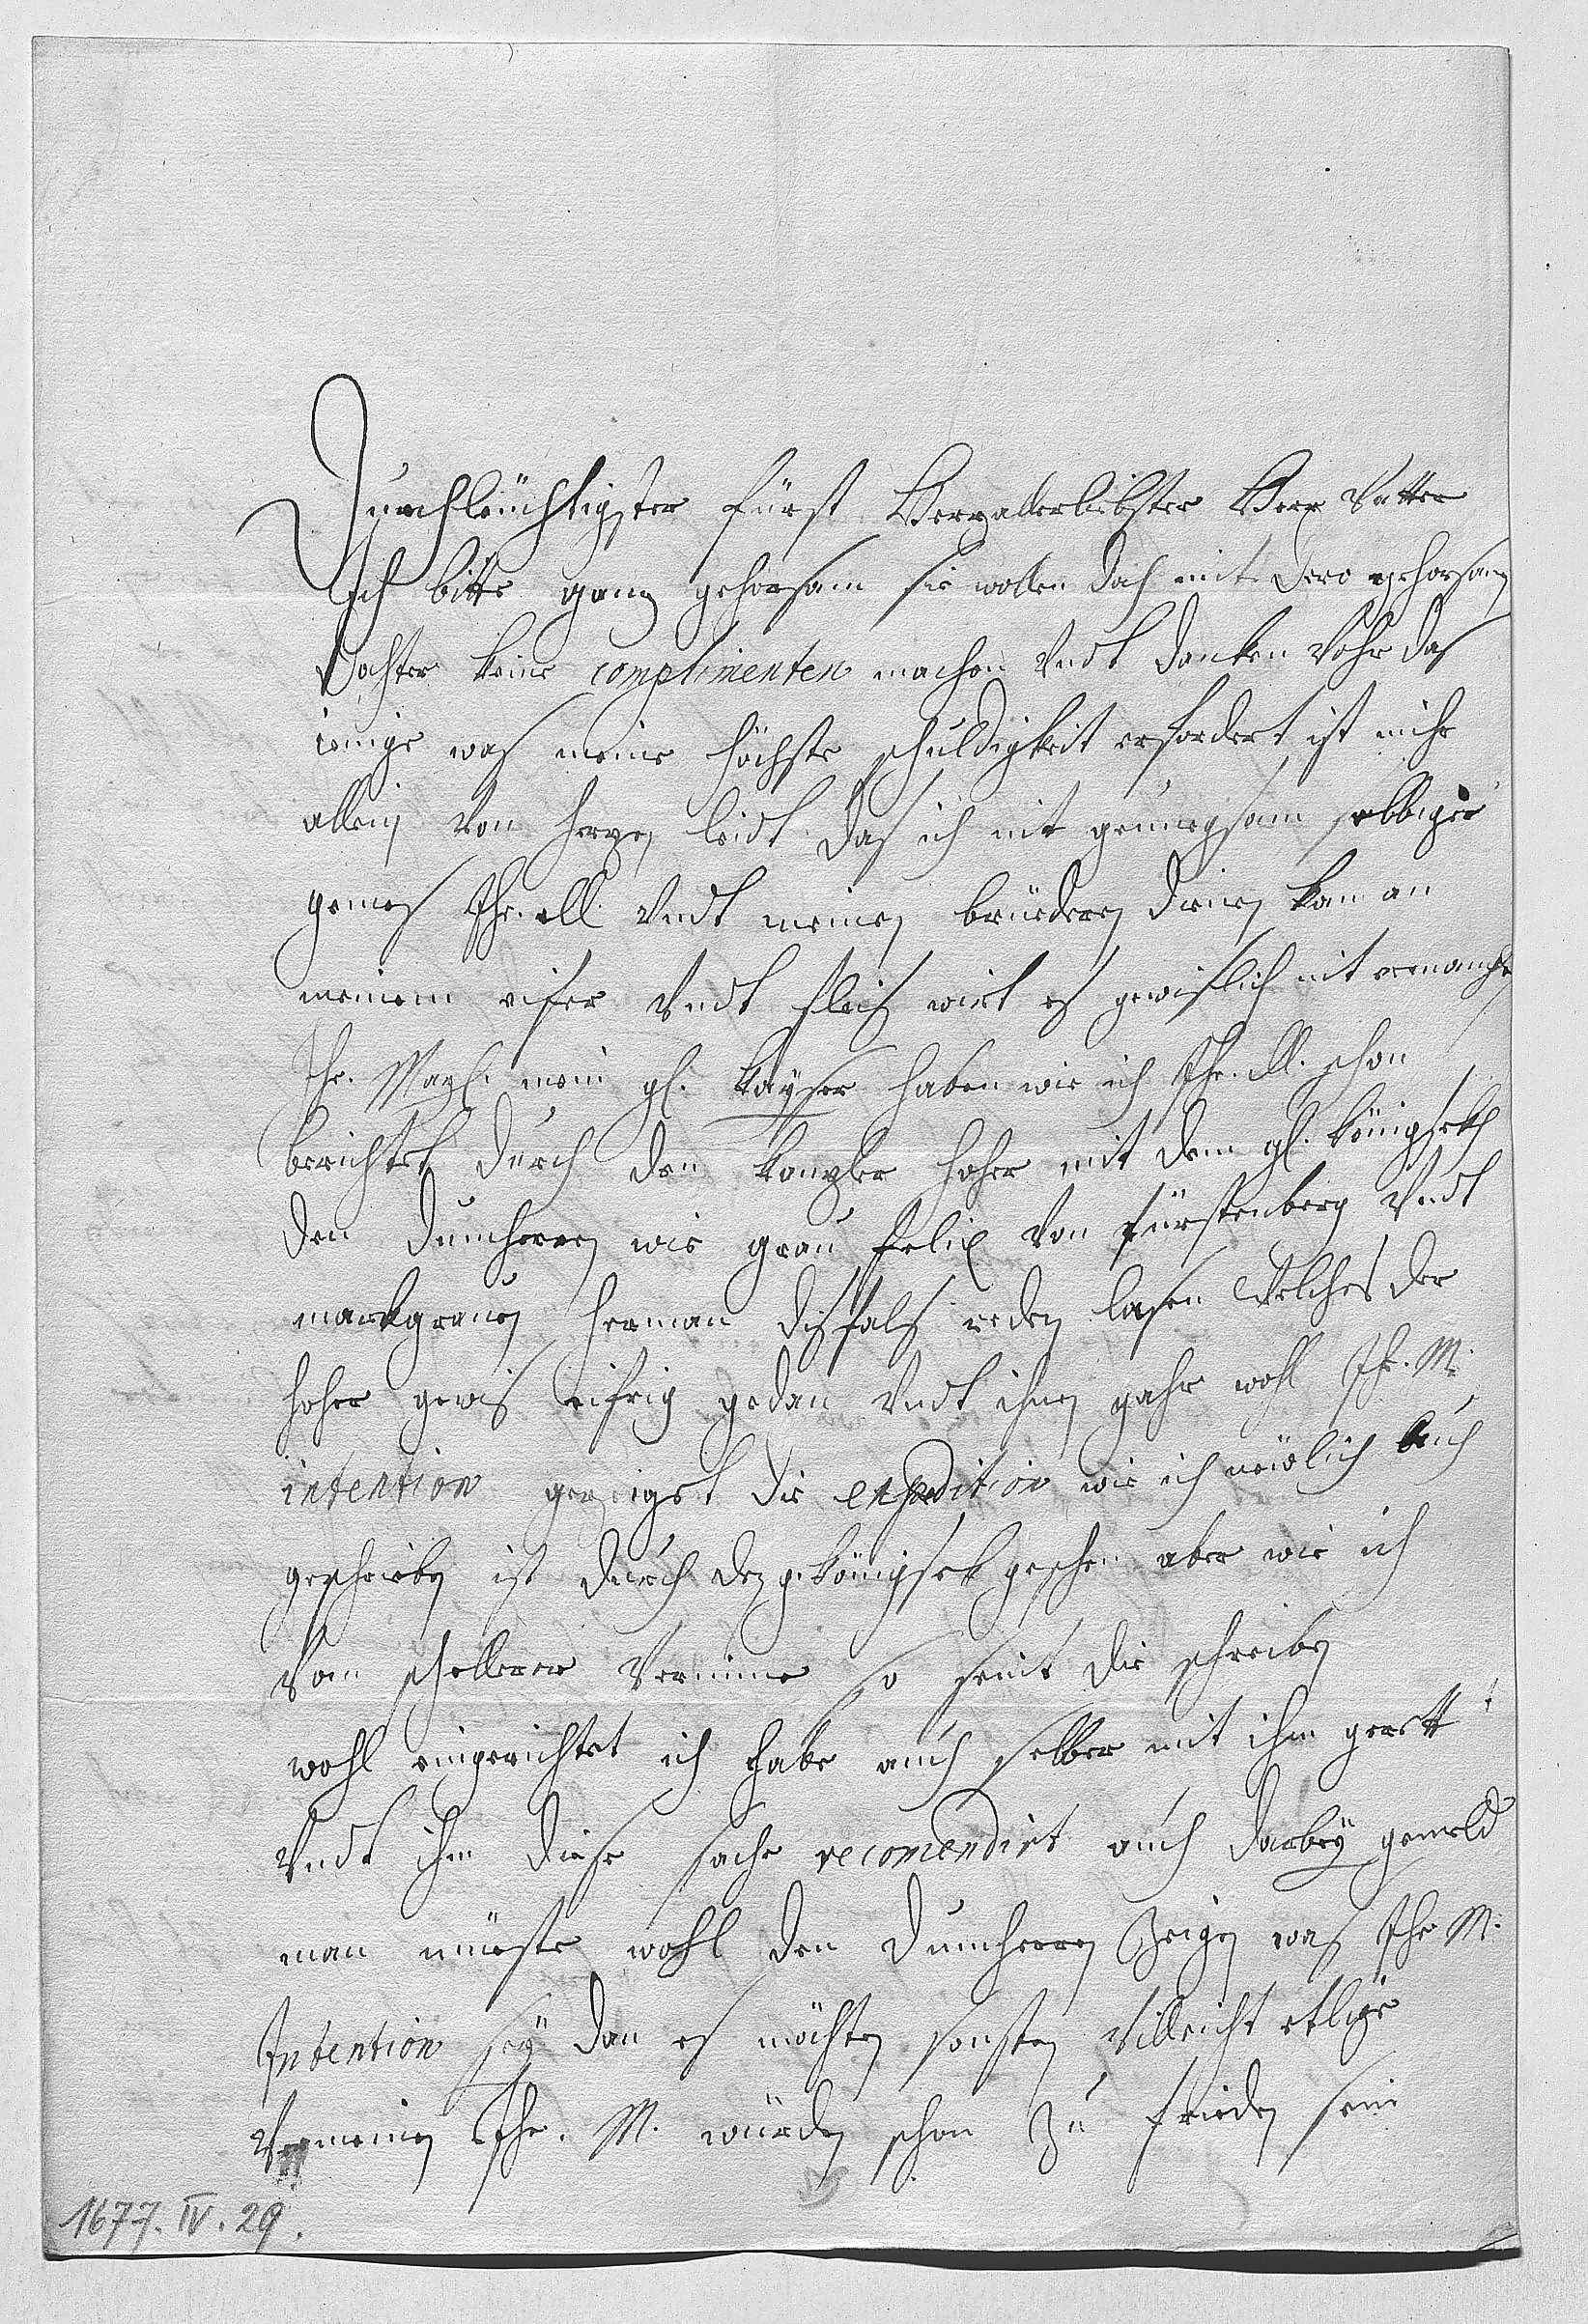 Durchleuchtigster Fürst Herzallerliebster Herr Vatter
Ich bitte ganz gehorsam sie wollen doch mit dero gehorsamen
dochter keine complimenten machen undt danken vohr das
ienige was meine höchste schuldigkeit erfordert, ist mihr
allein von herzen leidt das ich nit genuegsam selbiger
gemes Ihr. dll. undt meinen brüedern dienen kan an
meinem eifer undt fleis wirt es gewislich nit ermanglen
Ihr. May. mein gl. Kayser haben wie ich Ihr. dl. schon
berichtet durch den kanzler hoher mit dem gl. königsekh
den dumherren wie grau felix von fürstenberg undt
markgrauen herman disfals reden lasen welches der
hoher gewis eifrig gedan undt ihnen gahr wohl Ihr. M:
intention gezeiget die expedition wie ich neulich auch
geschrieben ist durch den g. königsek geschen aber wie ich
vom schellerer vernime so seint die schreiben
wohl eingerichtet ich habe auch selber mit ihm gerett
undt ihm diese sache recomendirt auch darbey gemeld
man müeste wohl den dumherren zeigen was Ihr M:
Intention sey dan es möchten sonsten villeicht etlige
vermeinen Ihr. M. würden schon zu frieden sein
1677. IV. 29.